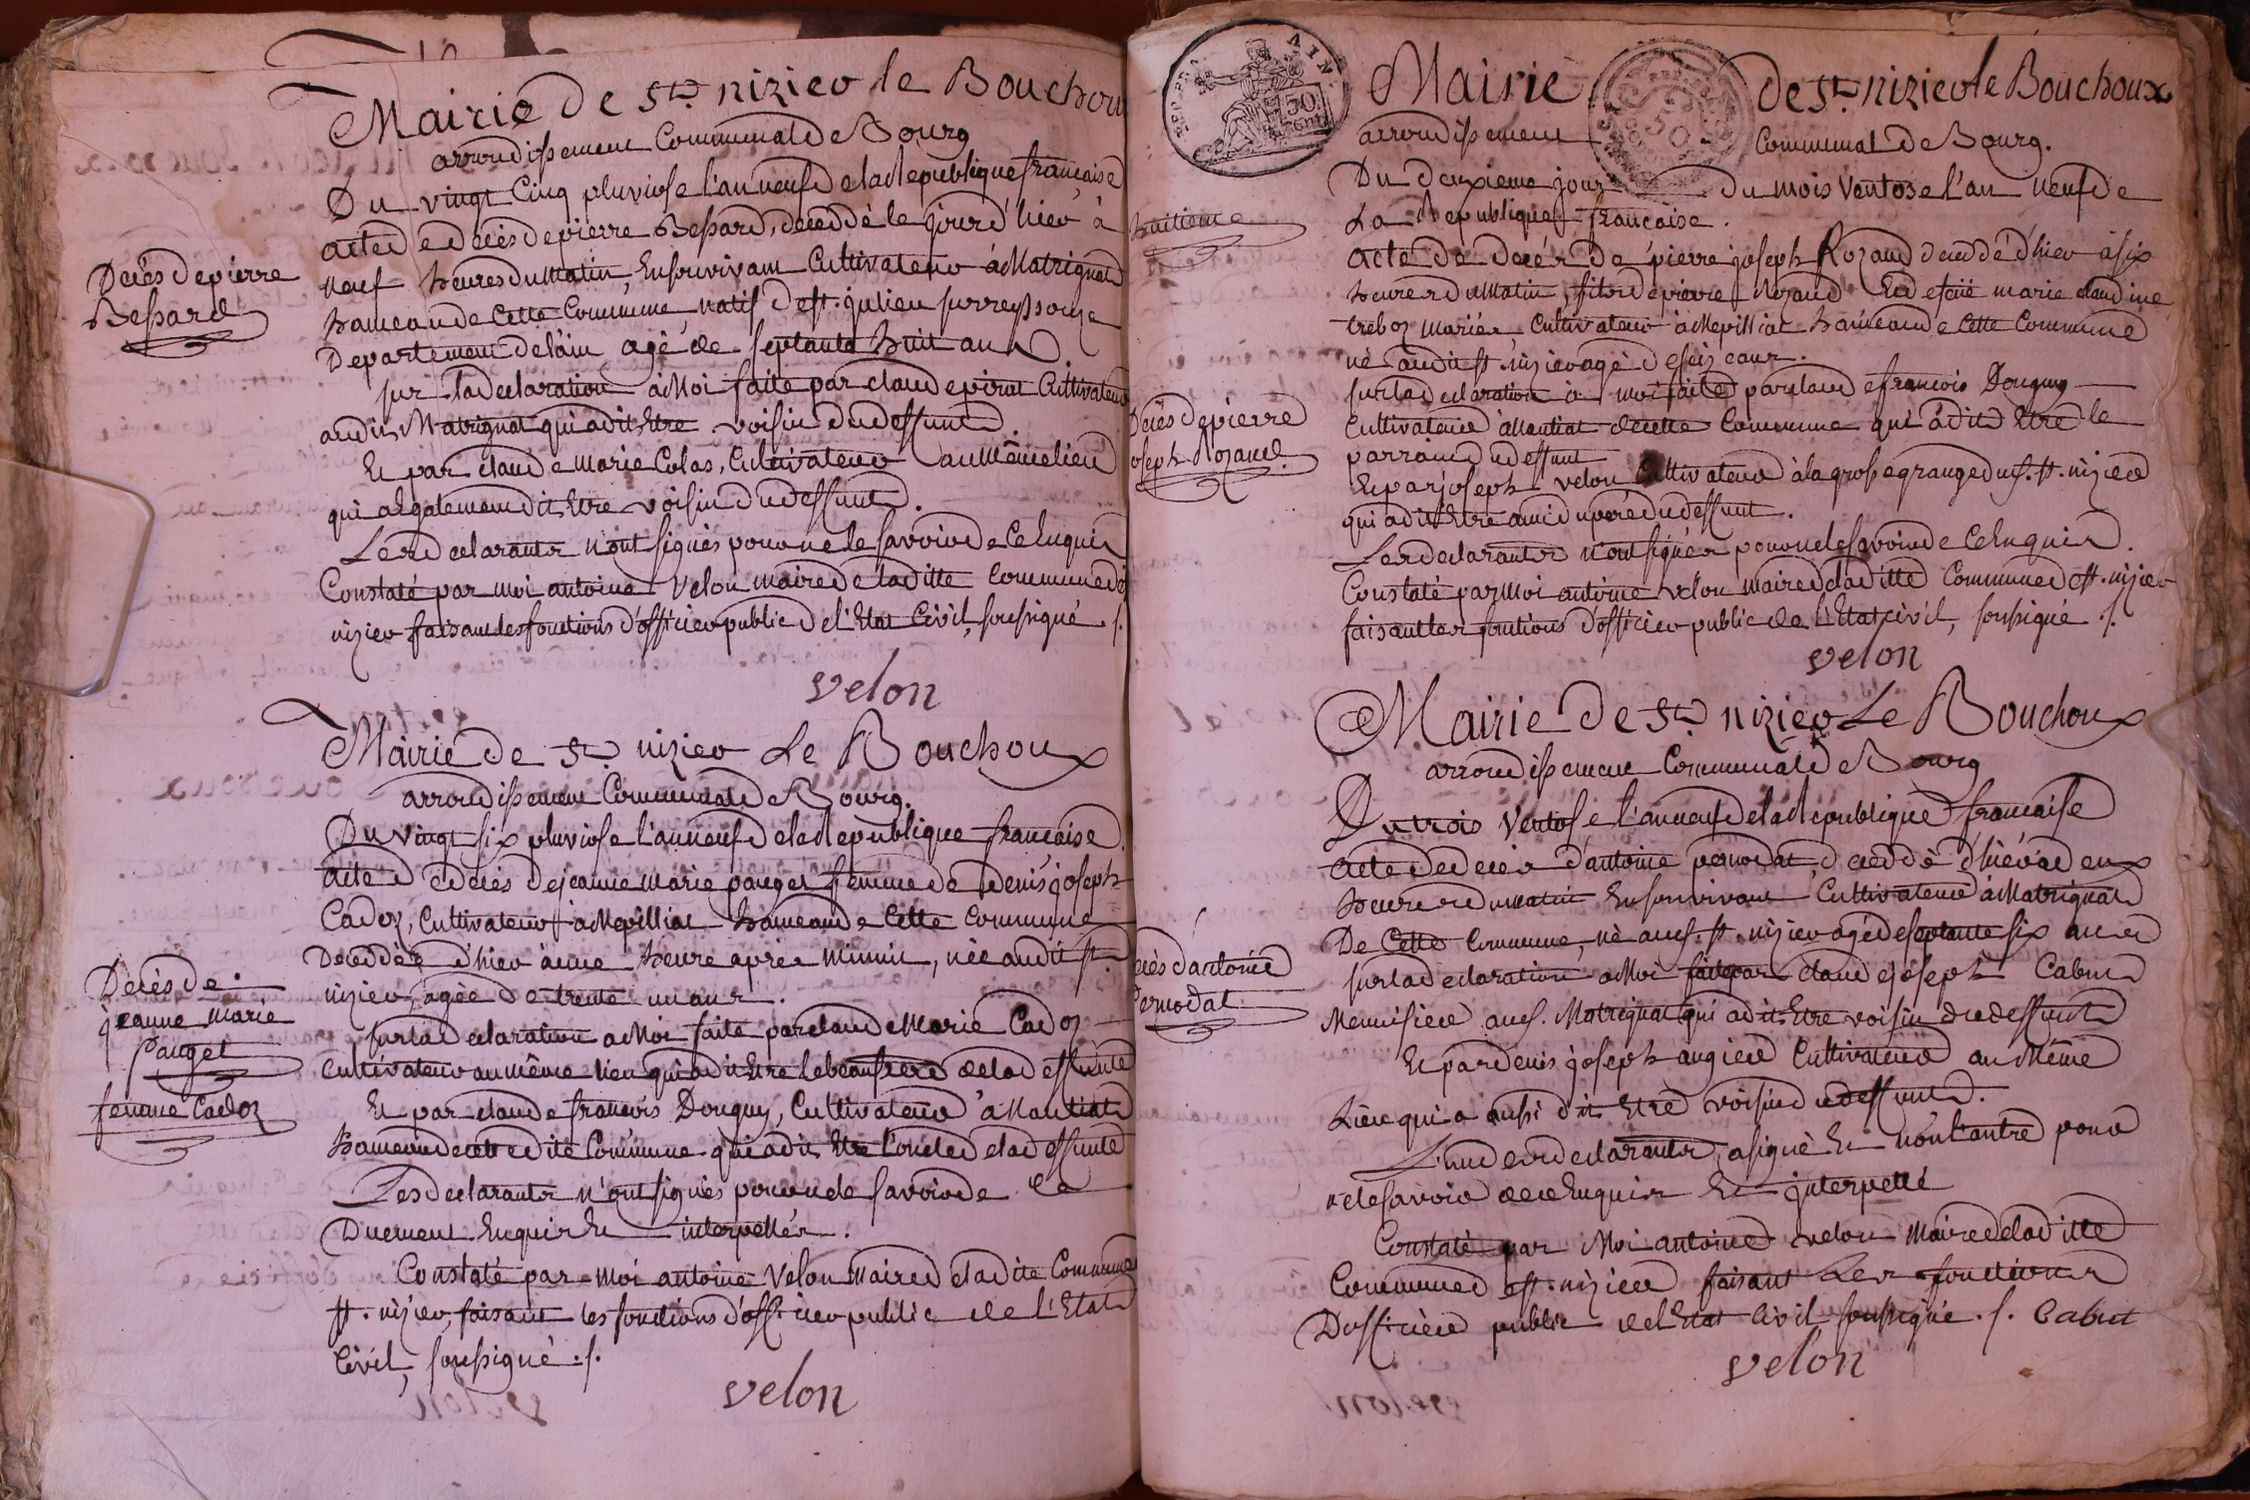 Mairie de St. nizier le Bouchoux
arrondissement Communal de Bourg
Du vingt Cinq pluviose l'an neuf de la Republique francaise
acte de decès de pierre Bessard, decedé le jour d'hier à
neuf heures du matin, En son vivant Cultivateur à Matrignat
hameau de cette Commune, natif de st. julien sur reyssouze
Departement de l'ain agé de septante huit ans
sur la declaration à Moi faite par claude pirat Cultivateur
audit Matrignat qui a dit Etre voisin du deffunt
Et par claude Marie Colas, Cultivateur au même lieu
qui a Egalement dit Etre voisin du deffunt.
Les declarants n'ont signés pour ne le savoir de ce Enquis
Constaté par moi antoine Velon maire de laditte Commune de st
nizier faisant les fonctions d'officier public de l'Etat Civil, soussigné ./.
velon
Decès de pierre
Bessard
Mairie de St. nizier Le Bouchoux
arrondissement Communal de Bourg.
Du vingt six pluviose l'an neuf de la Republique francaise
acte de decès de jeanne marie pauget femme de Denis joseph
Cadoz, Cultivateur à Mepilliat hameau de cette Commune
Decedée d'hier à une heure après Minuit, née audit st.
nizier, agée de trente un ans.
sur la declaration a Moi faite par claude Marie Cadoz
Cultivateur au même lieu qui a dit Etre le beaufrere de la deffunte
Et par claude francois Douguy, Cultivateur à Mantiat
hameau de cette dite Commune qui a dit Etre l'oncle de la deffunte
Les declarants n'ont signés pour ne le savoir de ce
Duement Enquis Et interpellés.
Constaté par Moi antoine Velon Maire de ladite Commune
st. nizier, faisant les fonctions d'officier public de l'Etat
Civil, soussigné ./.
velon
Decès de
jeanne marie
Pauget
femme Cadoz
Mairie de St. nizier le Bouchoux
arrondissement Communal de Bourg.
Du deuxieme jour du mois Ventose l'an neuf de
La Republique francaise.
acte de decés de pierre joseph Rozand decedé d'hier à six
heures du Matin, fils de pierre Rozand Et de marie claudine
treboz mariés, Cultivateur à Mepilliat hameau de cette Commune
né audit st. nizier agé de seize ans.
sur la declaration à moi faite par claude francois Douguy
Cultivateur à Mantiat de cette Commune qui a dit Etre le
parrain du deffunt
Et par joseph velon Cultivateur à la grosse grange dud. st. nizier
qui a dit Etre ami du père du deffunt.
Les declarants n'ont signés pour ne le savoir de ce Enquis.
Constaté par Moi antoine velon maire de laditte Commune de st. nizier
faisant les fontions d'officier public de l'Etat civil, soussigné ./.
velon
huitieme
Decès de pierre
joseph Rozand.
AIN
50
CENT
Mairie de St. nizier Le Bouchoux
arrondissement Communal de Bourg
Du trois Ventose l'an neuf de la Republique francaise
acte de decés d'antoine permodat, decedé d'hier à deux
heures du matin En son vivant Cultivateur à Matrignat
De cette Commune, né aud. st. nizier agé de septante six ans
sur la declaration a Moi faite par claude joseph Cabut
Menuisier aud. Matrignat qui a dit Etre voisin du deffunt
Et par denis joseph augier Cultivateur au Même
Lieu qui a aussi dit Etre voisin du deffunt.
L'un des declarants, a signé Et non l'autre pour
ne le savoir de ce Enquis Et interpellé
Constaté par Moi antoine velon Maire de laditte
Commune de st. nizier faisant Les fonctions
D'officier public de l'Etat Civil soussigné ./. Cabut
velon
decès d'antoine
Permodat